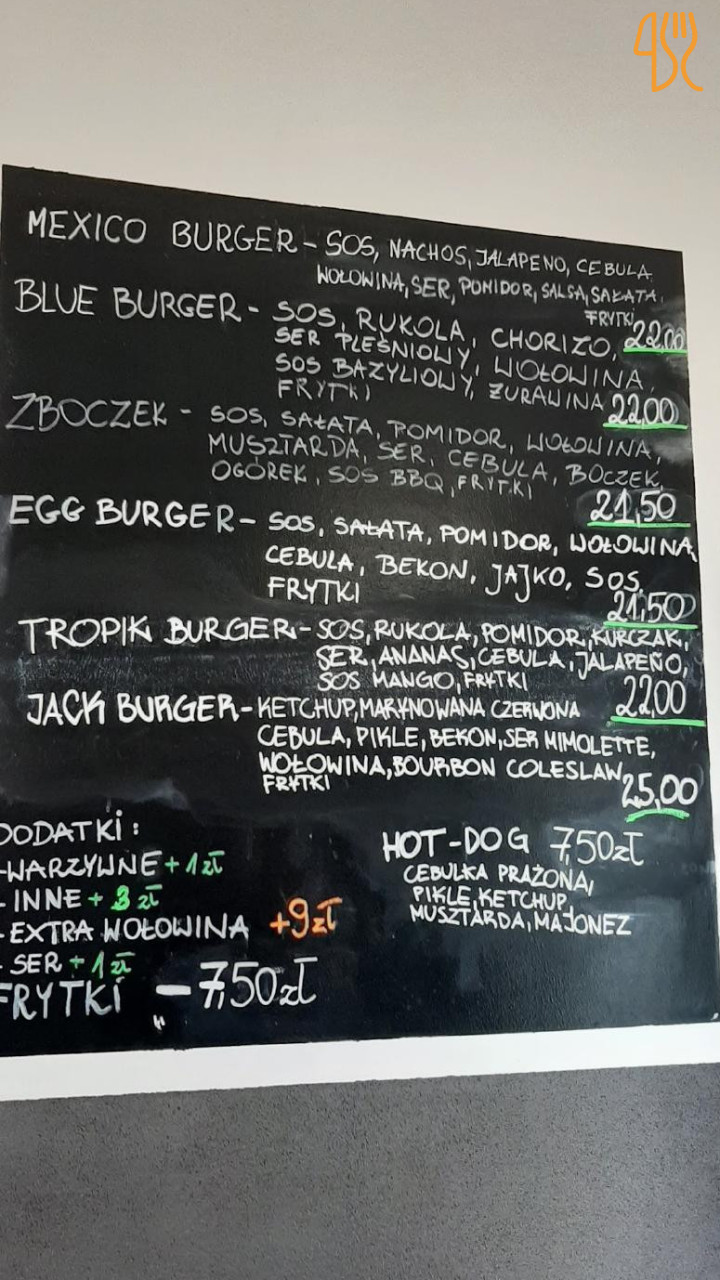 MEXICO BURGER - SOS, NACHOS, JALAPENO, CEBULA,
WOŁOWINA, SER, POMIDOR, SALSA, SAŁATA,
FRYTKI 22,00
BLUE BURGER - SOS, RUKOLA, CHORIZO,
SER PLEŚNIOWY, WOŁOWINA,
SOS BAZYLIOWY, ŻURAWINA
FRYTKI 22,00
ZBOCZEK - SOS, SAŁATA, POMIDOR, WOŁOWINA,
MUSZTARDA, SER, CEBULA, BOCZEK,
OGÓREK, SOS BBQ, FRYTKI
21,50
EGG BURGER - SOS, SAŁATA, POMIDOR, WOŁOWINA,
CEBULA, BEKON, JAJKO, SOS,
FRYTKI 21,50
TROPIK BURGER - SOS, RUKOLA, POMIDOR, KURCZAK,
SER, ANANAS, CEBULA, JALAPEÑO,
SOS MANGO, FRYTKI 22,00
JACK BURGER - KETCHUP, MARYNOWANA CZERWONA
CEBULA, PIKLE, BEKON, SER MIMOLETTE,
WOŁOWINA, BOURBON COLESLAW,
FRYTKI 25,00
DODATKI:
- WARZYWNE + 1 zł
- INNE + 3 zł
- EXTRA WOŁOWINA +9zł
- SER + 1 zł
FRYTKI - 7,50zł
HOT-DOG 7,50zł
CEBULKA PRAŻONA,
PIKLE, KETCHUP,
MUSZTARDA, MAJONEZ